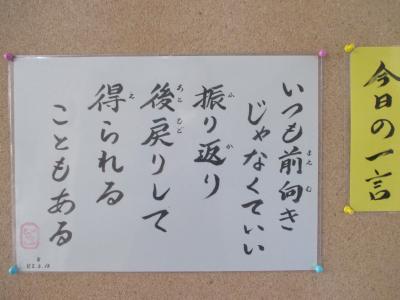 今日の一言
いつも前向き
じゃなくていい
振り返り
後戻りして
得られる
こともある